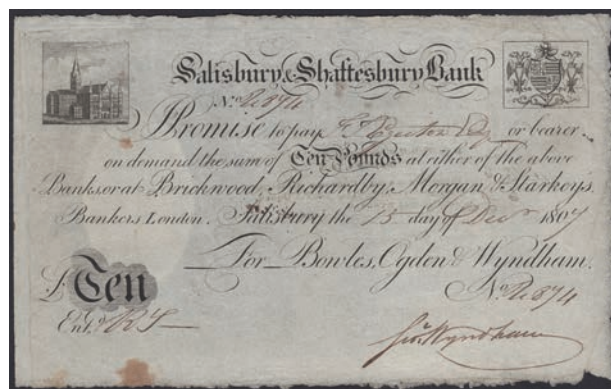 Salisbury & Shaftesbury Bank
No. 874
I Promise to pay or bearer
on demand the sum of Ten Pounds at either of the above
Banks, or at Brickwood, Richardby, Morgan & Starkey's,
Bankers London. Salisbury the 15 day of Decr 1807
For Bowles, Ogden & Wyndham.
£ Ten
No. 874
Entd.
Wyndham